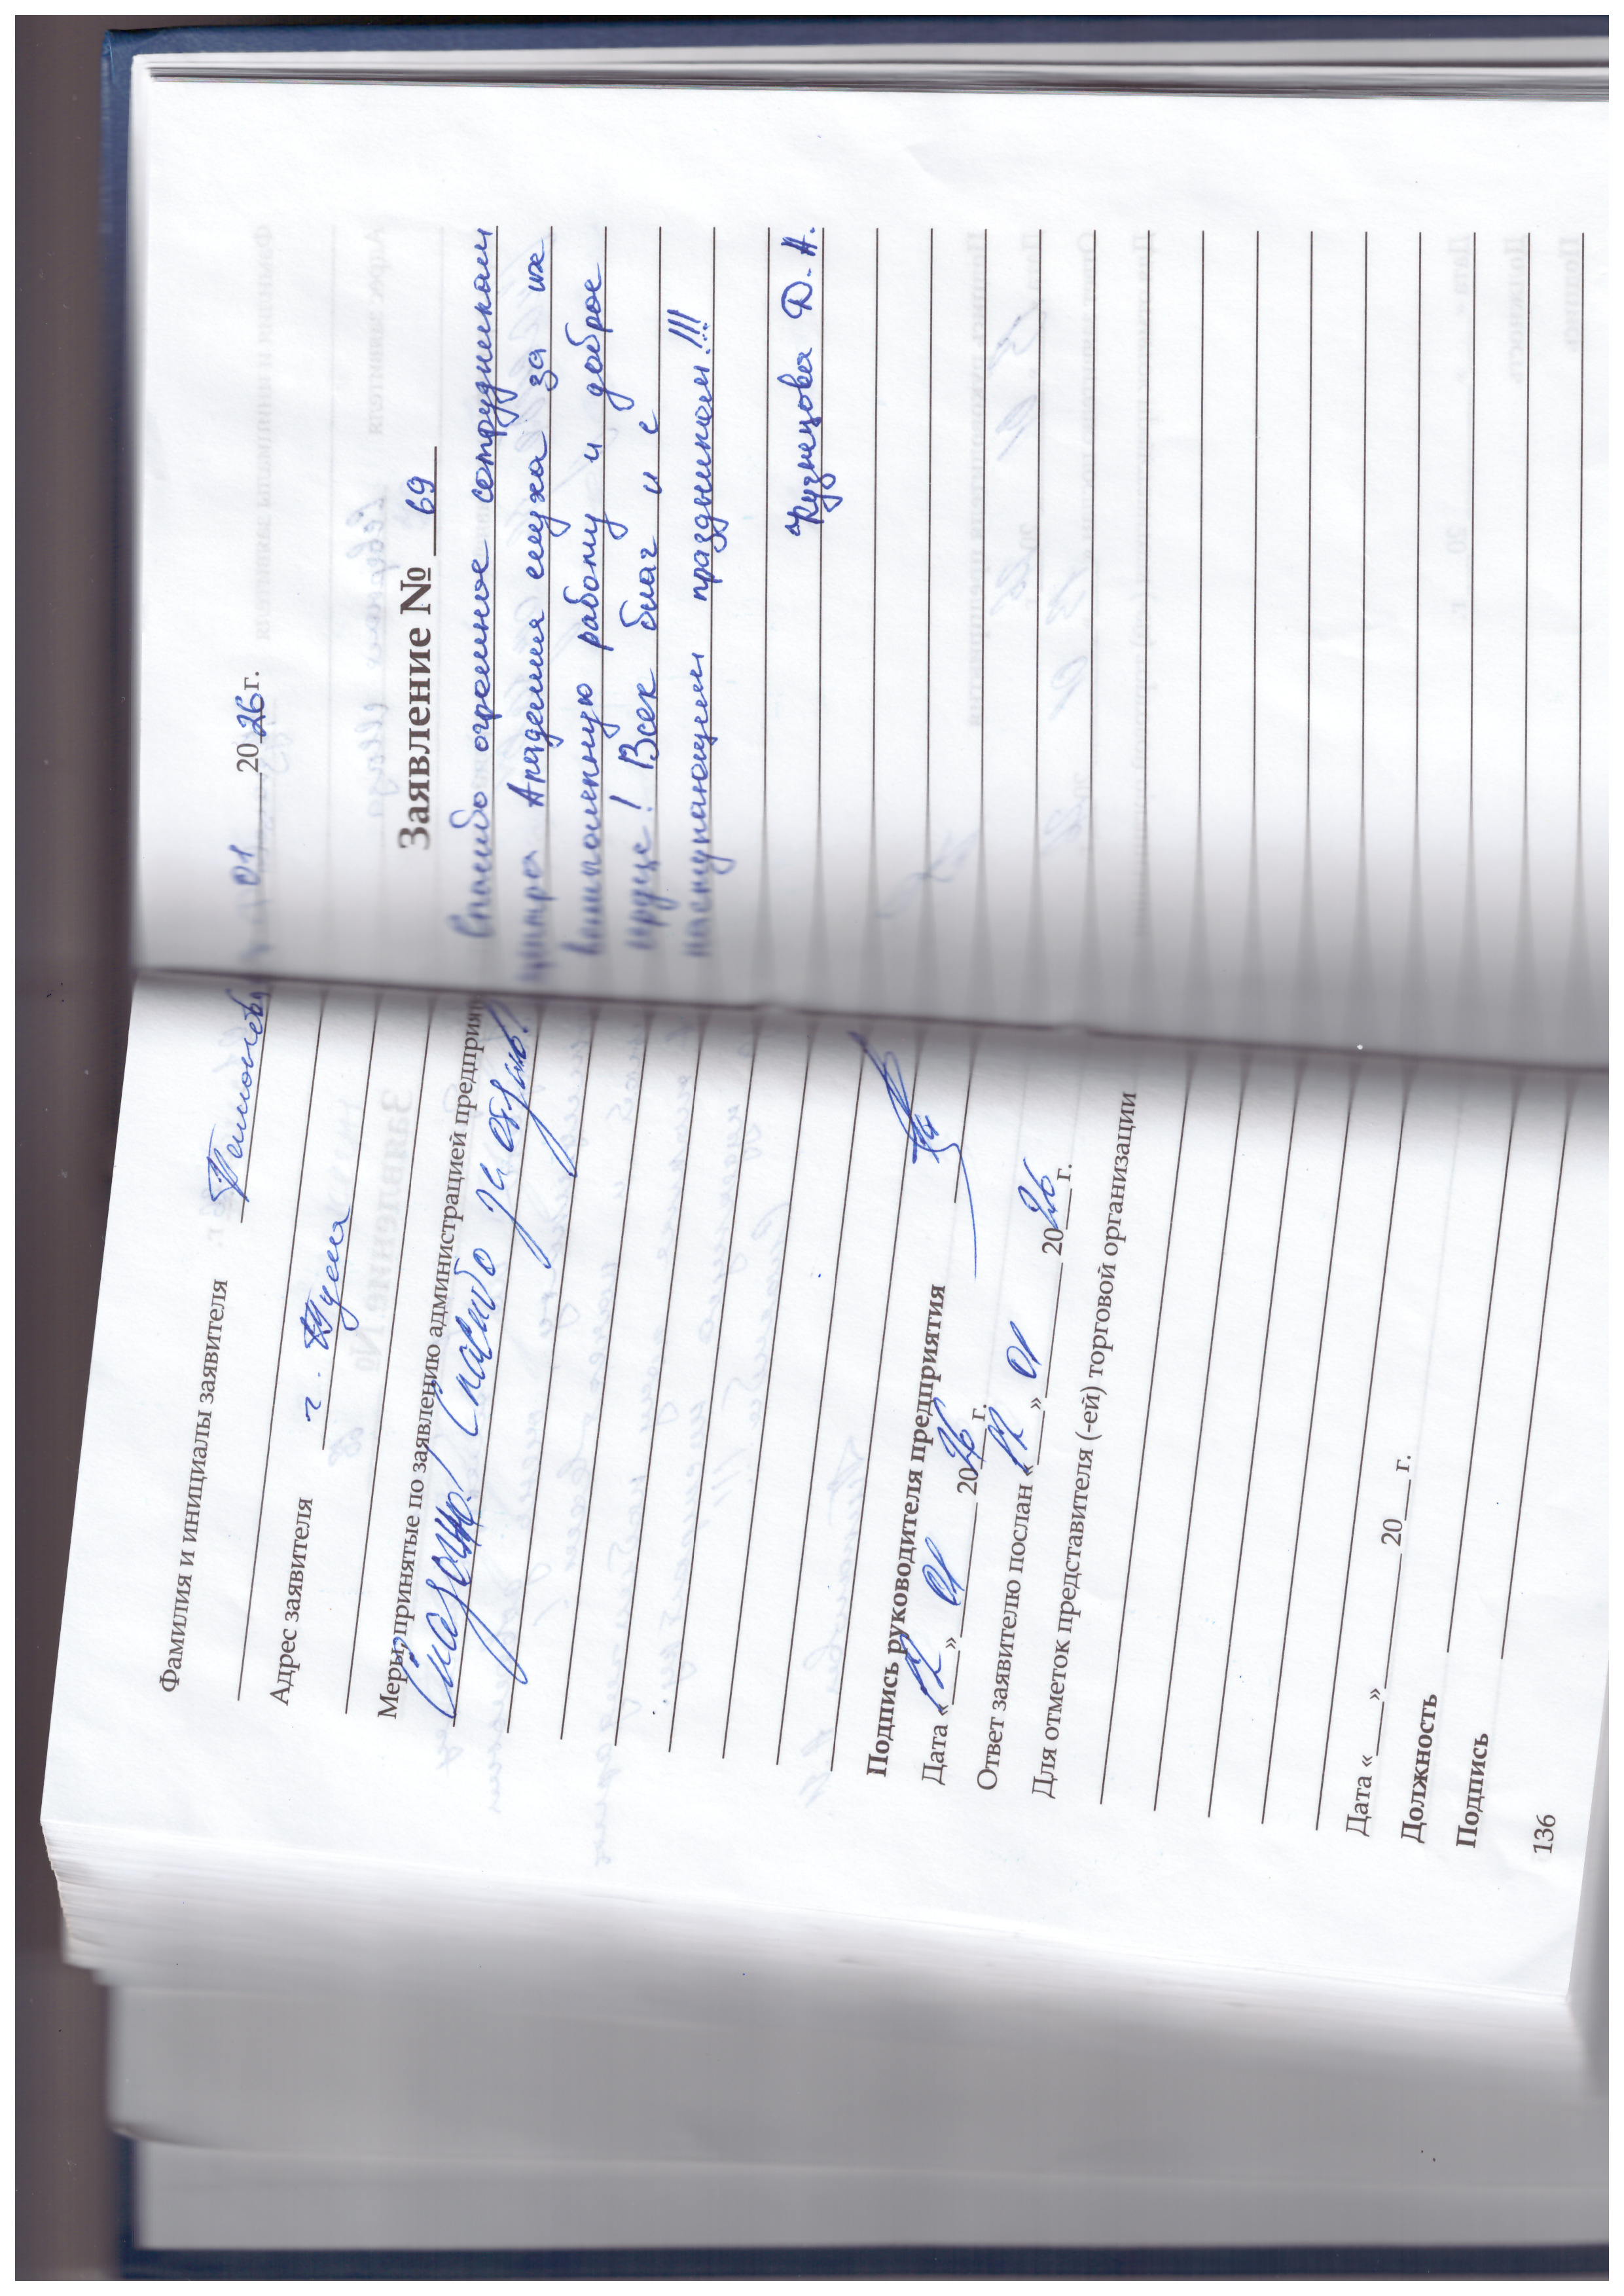 Фамилия и инициалы заявителя
Адрес заявителя г. Тула
Меры, принятые по заявлению администрацией предприя
Спасибо за отзыв!
Подпись руководителя предприятия
Дата « 12 » 01 2026 г.
Ответ заявителю послан « 12 » 01 2026 г.
Для отметок представителя (-ей) торговой организации
Дата «___» ______ 20___ г.
Должность
Подпись
136
01 2026 г.
Заявление № 69
Спасибо огромное сотрудникам
центра Академия слуха за их
работу и доброе
! Всех благ и с
наступающим праздником!!!
Кузнецова Д. А.